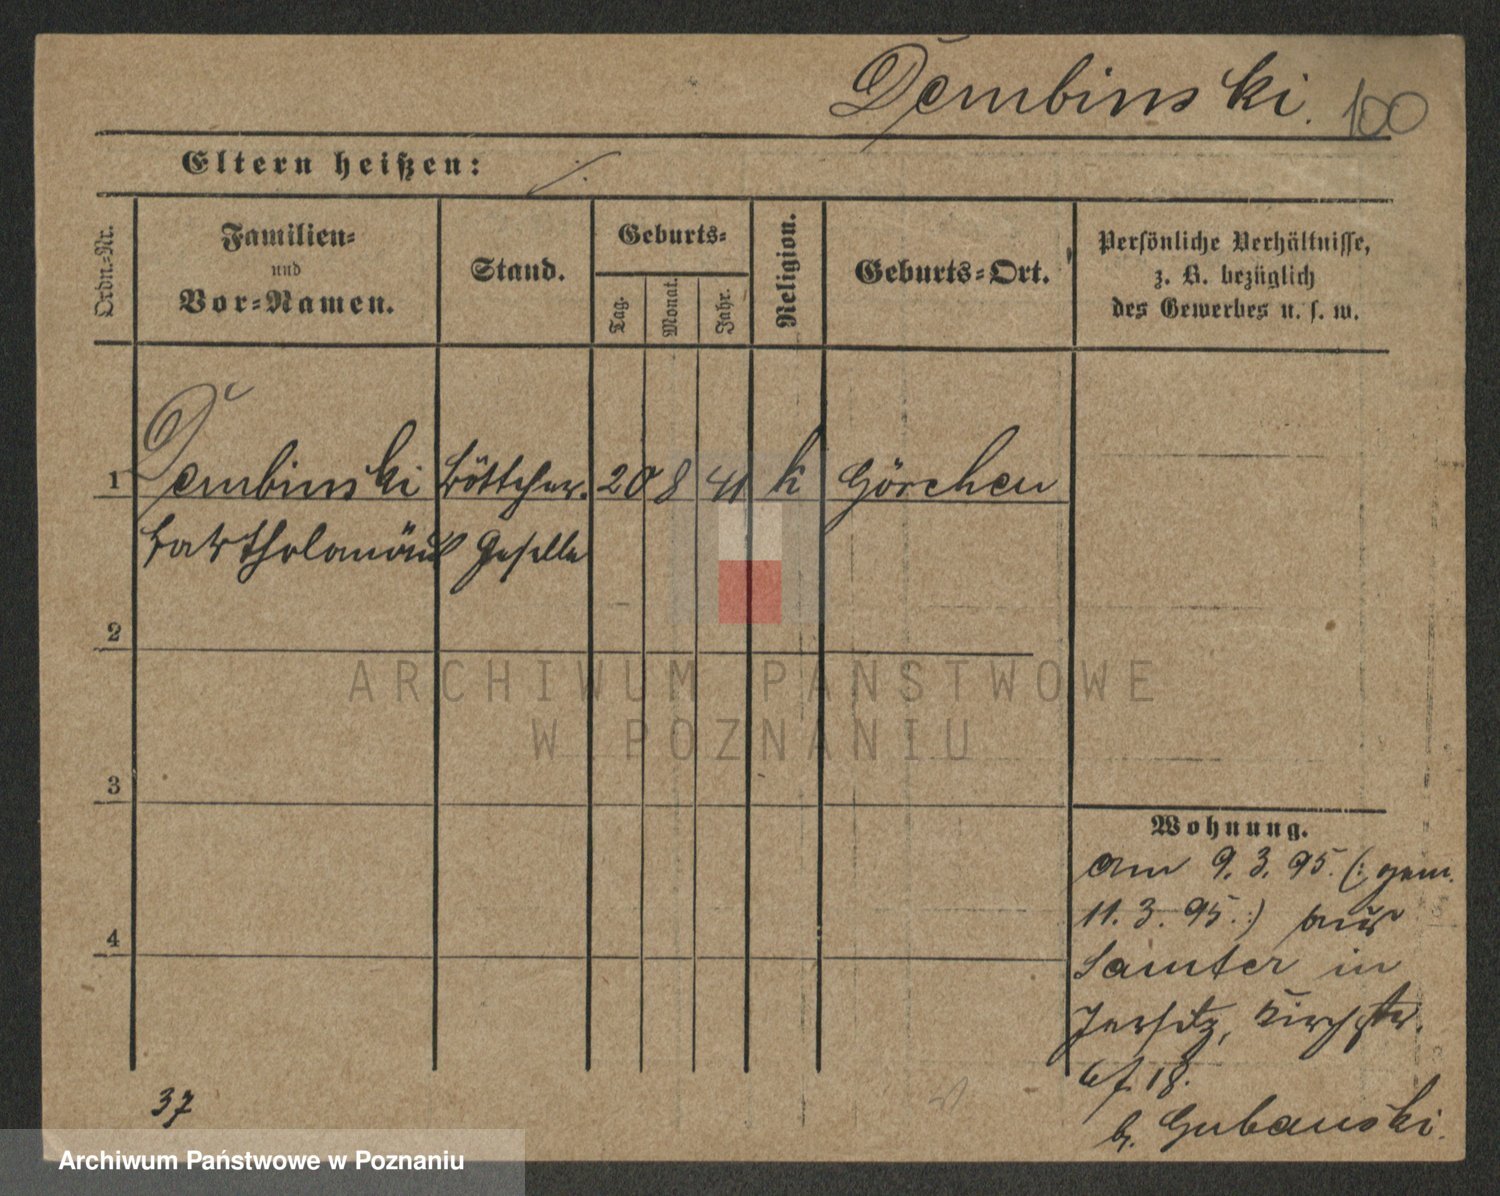 Dembinski. 100
Eltern heißen:
Ordn.=Nr.
Familien=
und
Vor=Namen.
Stand.
Geburts=
Tag.
Monat.
Jahr.
Religion.
Geburts=Ort.
Persönliche Verhältnisse,
z. B. bezüglich
des Gewerbes u. s. w.
1 Dembinski Böttcher. 20 8 41 k Görchen
Bartholomäus Geselle
2
ARCHIWUM PAŃSTWOWE
W POZNANIU
3
Wohnung.
am 9. 3. 95. (: gem.
11. 3. 95. :) aus
4
Samter in
Jersitz, Kirchstr.
18.
b. Gubanski.
37
Archiwum Państwowe w Poznaniu